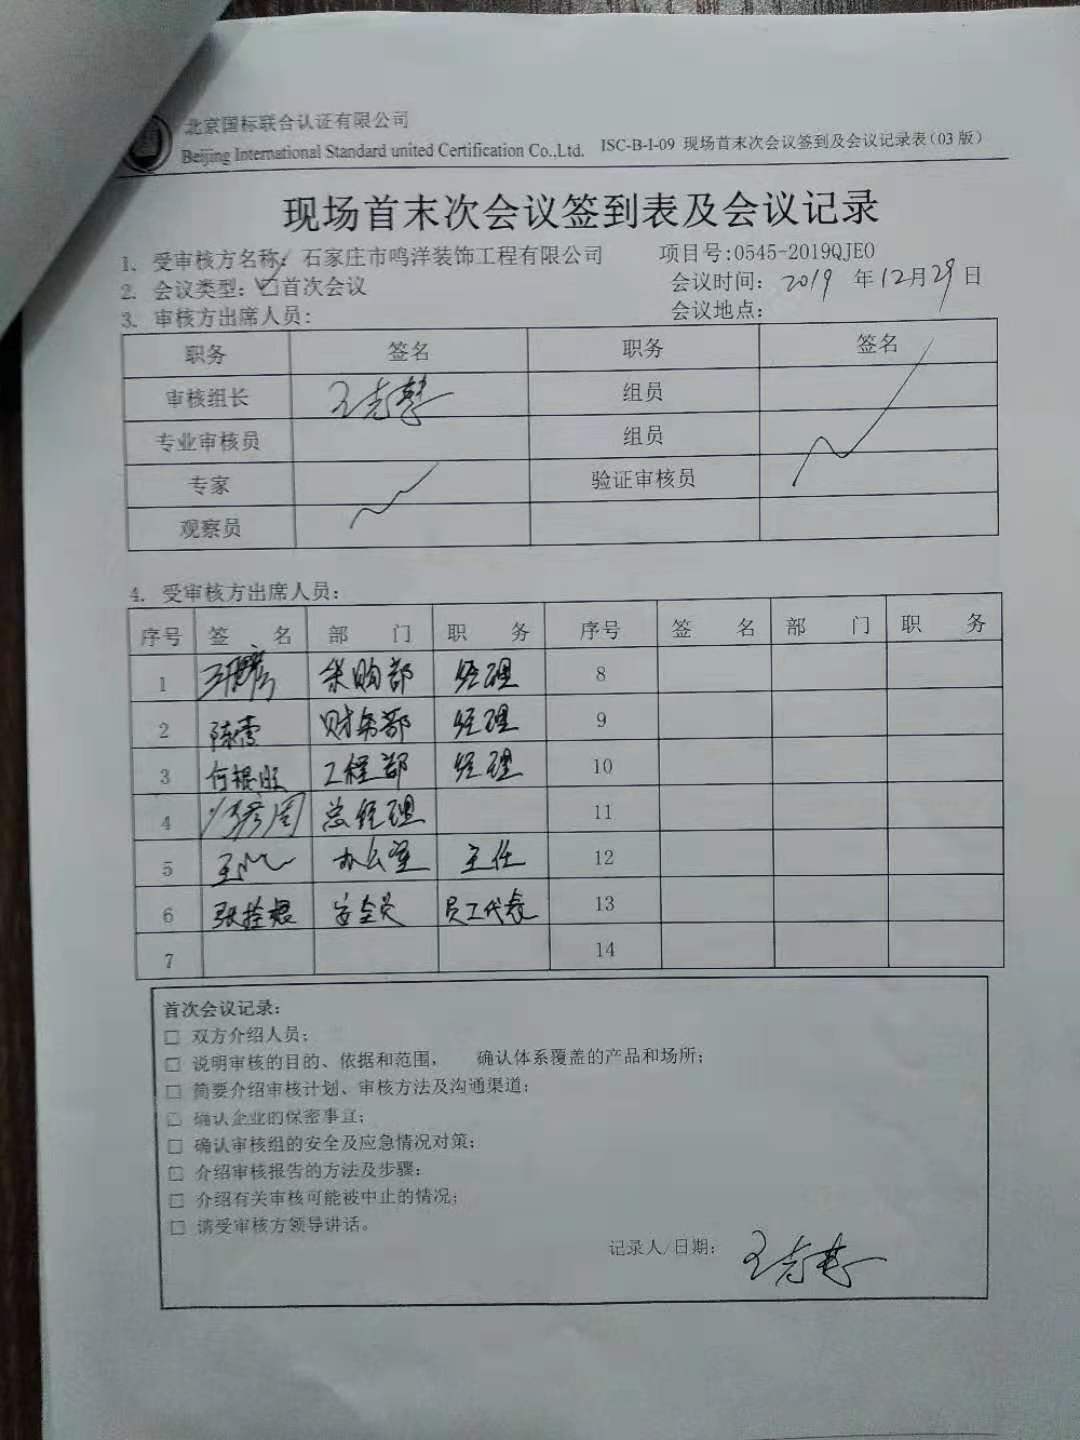 北京国标联合认证有限公司
Beijing International Standard united Certification Co.,Ltd. ISC-B-I-09 现场首末次会议签到及会议记录表(03 版)
现场首末次会议签到表及会议记录
1、受审核方名称: 石家庄市鸣洋装饰工程有限公司 项目号:0545-2019QJEO
2. 会议类型: ☑首次会议 会议时间: 2019 年 12月 29 日
3. 审核方出席人员: 会议地点:
职务 签名 职务 签名
审核组长 组员
专业审核员 组员
专家 验证审核员
观察员
4. 受审核方出席人员:
序号 签 名 部 门 职 务 序号 签 名 部 门 职 务
1 采购部 经理 8
2 陈雪 财务部 经理 9
3 何根旺 工程部 经理 10
4 总经理 11
5 办公室 主任 12
6 安全员 员工代表 13
7 14
首次会议记录:
□ 双方介绍人员;
□ 说明审核的目的、依据和范围, 确认体系覆盖的产品和场所;
□ 简要介绍审核计划、审核方法及沟通渠道;
□ 确认企业的保密事宜;
□ 确认审核组的安全及应急情况对策;
□ 介绍审核报告的方法及步骤;
□ 介绍有关审核可能被中止的情况;
□ 请受审核方领导讲话。
记录人/日期: